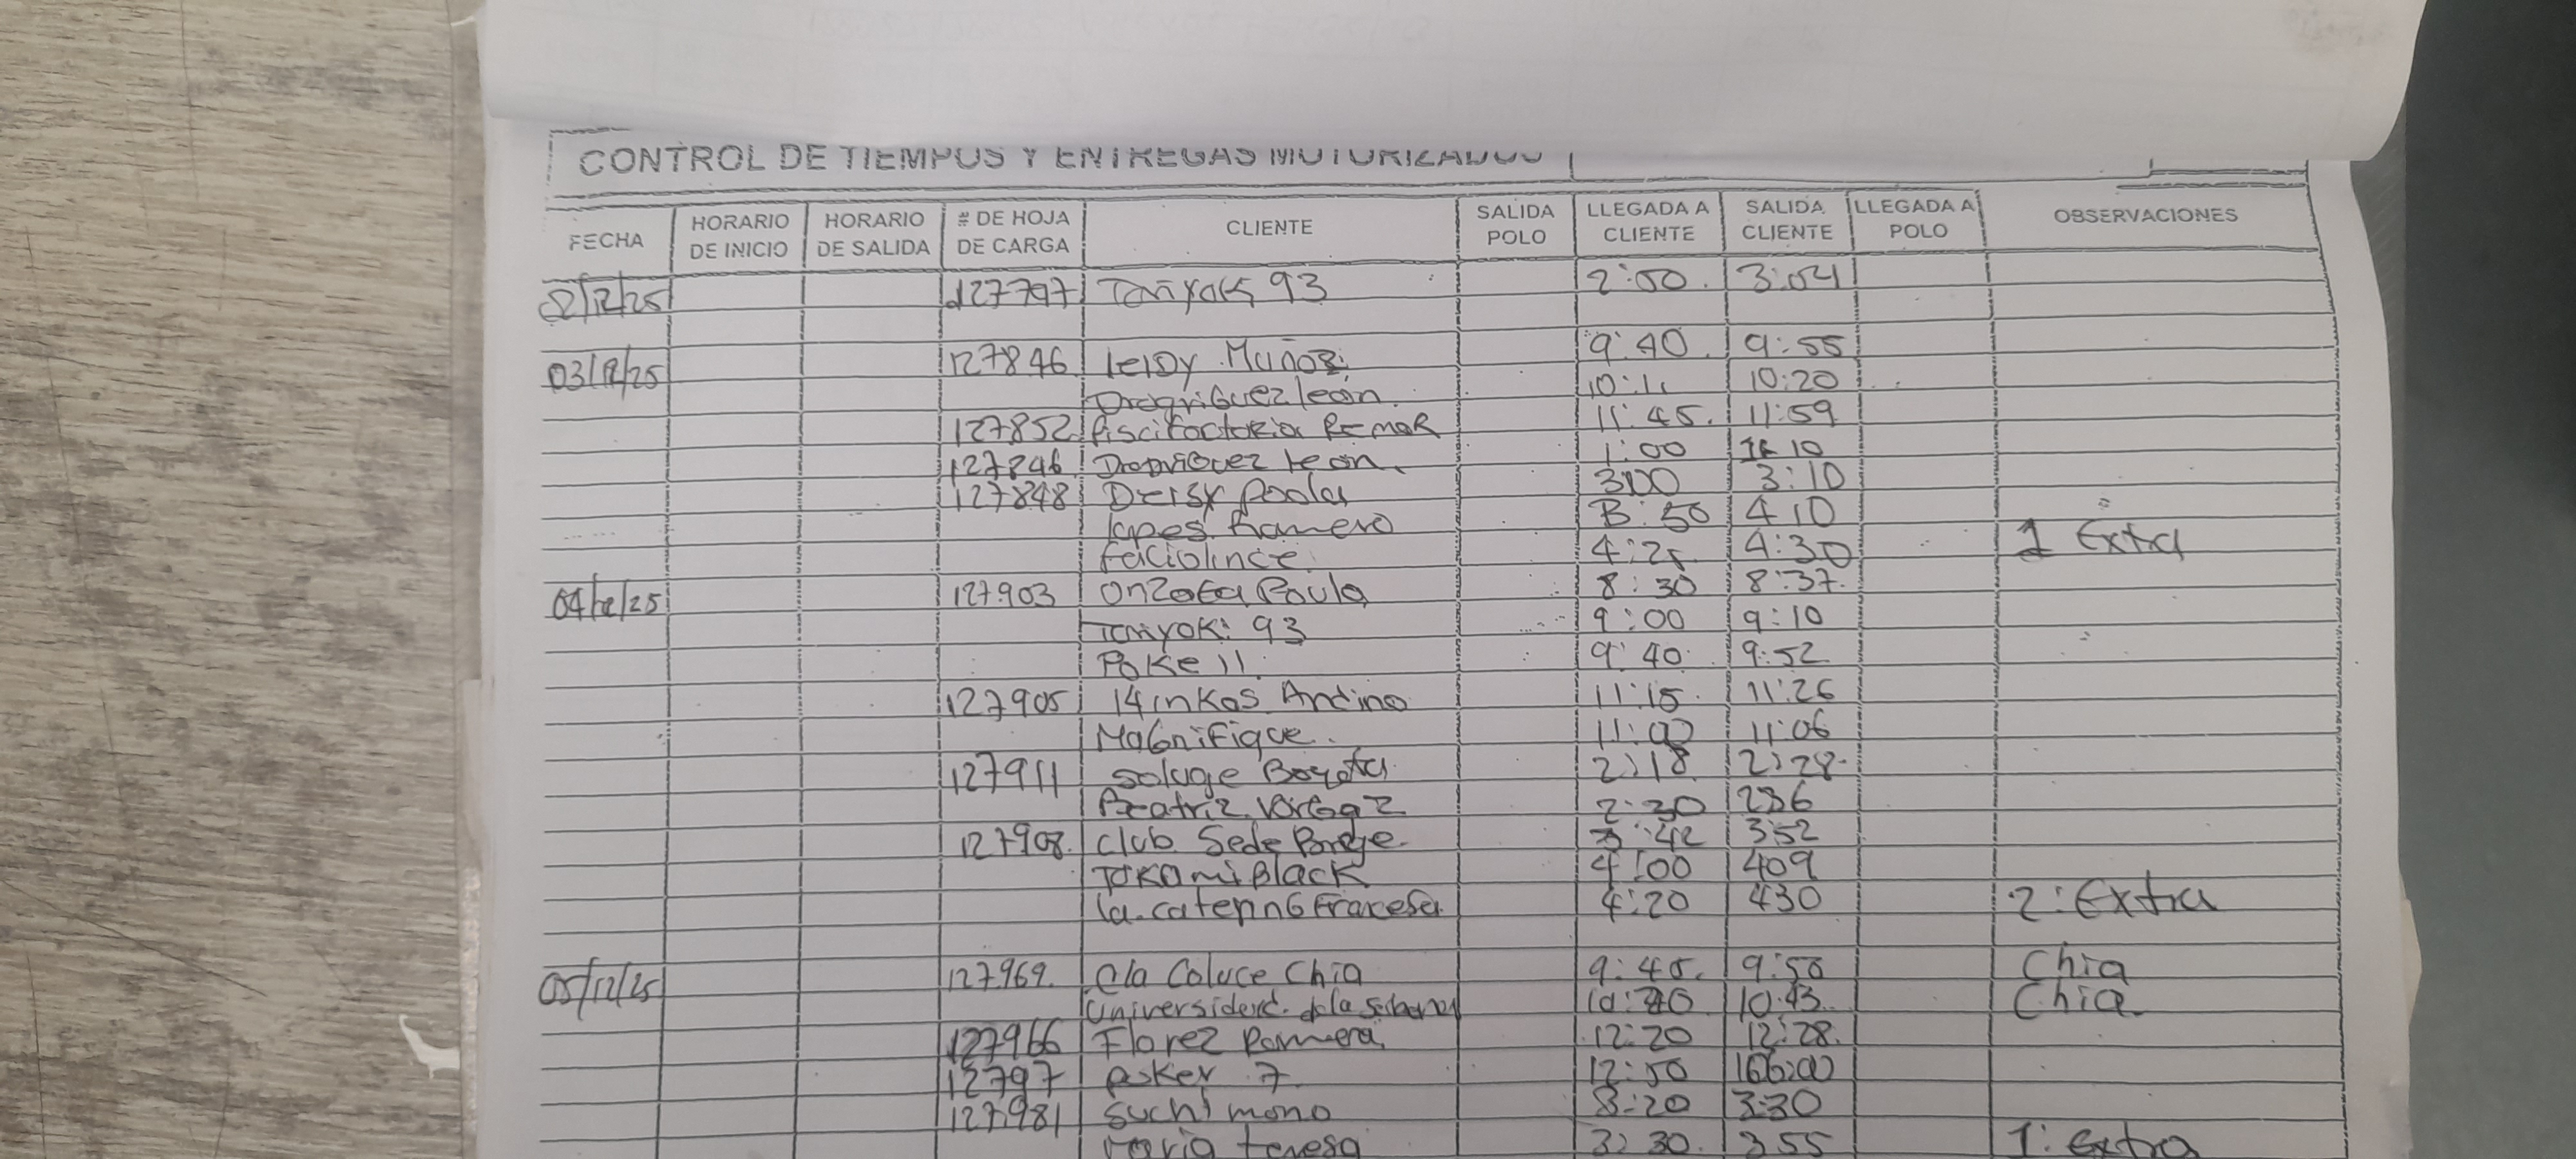 CONTROL DE TIEMPOS Y ENTREGAS MOTORIZADOS
FECHA HORARIO DE INICIO HORARIO DE SALIDA # DE HOJA DE CARGA CLIENTE SALIDA POLO LLEGADA A CLIENTE SALIDA CLIENTE LLEGADA A POLO OBSERVACIONES
2/12/25 127797 Taiyoki 93 2:50 3:04
03/12/25 127846 leidy Muñoz 9:40 9:55
León 10:20
127852 Piscifactoria Remar 11:45 11:59
127846 leon 1:00 10
127848 Deisy Paola 3:00 3:10
lopes Ramero :50 4 10
Faciolince 4:25 4:30 1 Extra
04/12/25 127903 Paula 8:30 8:37
Taiyoki 93 9:00 9:10
Poke 11 9:40 9:52
127905 14 inkas Andino 11:15 11:26
MaGniFique 11:00 11:06
127911 Bogota 2:18 2:28
Beatriz VarGaz 2:30 236
127908 Club Sede :42 3:52
Tokami Black 4:00 409
la 4:20 430 2: Extra
05/12/25 127969 Chia 9:45 9:50 Chia
Universidad de la Sabana 10:40 10:43 Chia
127966 Florez 12:20 12:28
12797 7 12:50
127981 Suchi mono 3:20 3:30
Maria teresa 3:30 3 55 1: extra